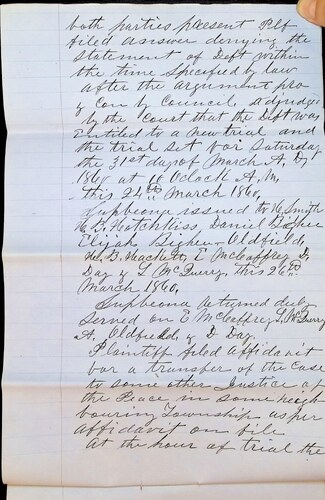 both parties present Plf
filed answer denying the
statement of Deft within
the time specified by law
after the argument pro
& con by Council, adjudged
by the court that the Deft was
entitled to a new trial and
the trial set for Saturday
the 31st day of March A. D.
1860 at 10 Oclock A. M.
this 24th March 1860,
Supboena issued to H. Smith
B. Hotchkiss, Daniel
Elijah Oldfield,
B. Hackett, E McCaffrey D.
Day & L McQuerry, this 26th
March 1860,
Supboena returned duly
served on E McCaffrey L. McQuerry
A, Oldfield, & D Day,
Plaintiff filed affidavit
for a transfer of the case
to some other Justice of
the Peace in some neigh
bouring Township as per
affidavit on file
At the hour of trial the